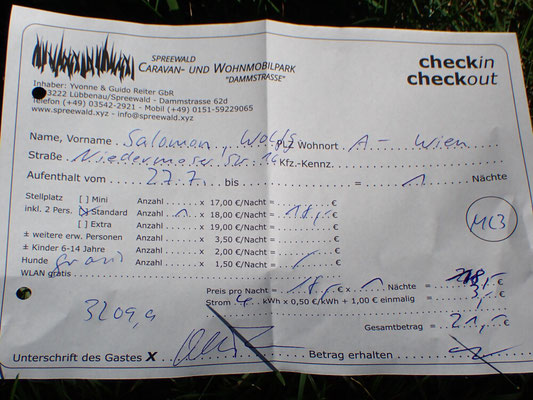 SPREEWALD
CARAVAN- UND WOHNMOBILPARK
"DAMMSTRASSE"
checkin
checkout
Inhaber: Yvonne & Guido Reiter GbR
03222 Lübbenau/Spreewald - Dammstrasse 62d
Telefon (+49) 03542-2921 - Mobil (+49) 0151-59229065
www.spreewald.xyz - info@spreewald.xyz
Name, Vorname Salomon, PLZ Wohnort A- Wien
Straße Kfz.-Kennz.
Aufenthalt vom 27.7. bis = 1 Nächte
Stellplatz [ ] Mini Anzahl x 17,00 €/Nacht = €
inkl. 2 Pers. [X] Standard Anzahl 1 x 18,00 €/Nacht = 18,- €
[ ] XXL Anzahl x 19,00 €/Nacht = €
± weitere erw. Personen Anzahl x 3,50 €/Nacht = €
± Kinder 6-14 Jahre Anzahl x 2,00 €/Nacht = €
Hunde gratis Anzahl x 1,50 €/Nacht = €
WLAN gratis
MC3
Preis pro Nacht = 18,- € x 1 Nächte = 18,- €
Strom 4 kWh x 0,50 €/kWh + 1,00 € einmalig = 3,- €
3209,9
Gesamtbetrag = 21,- €
Unterschrift des Gastes X
Betrag erhalten